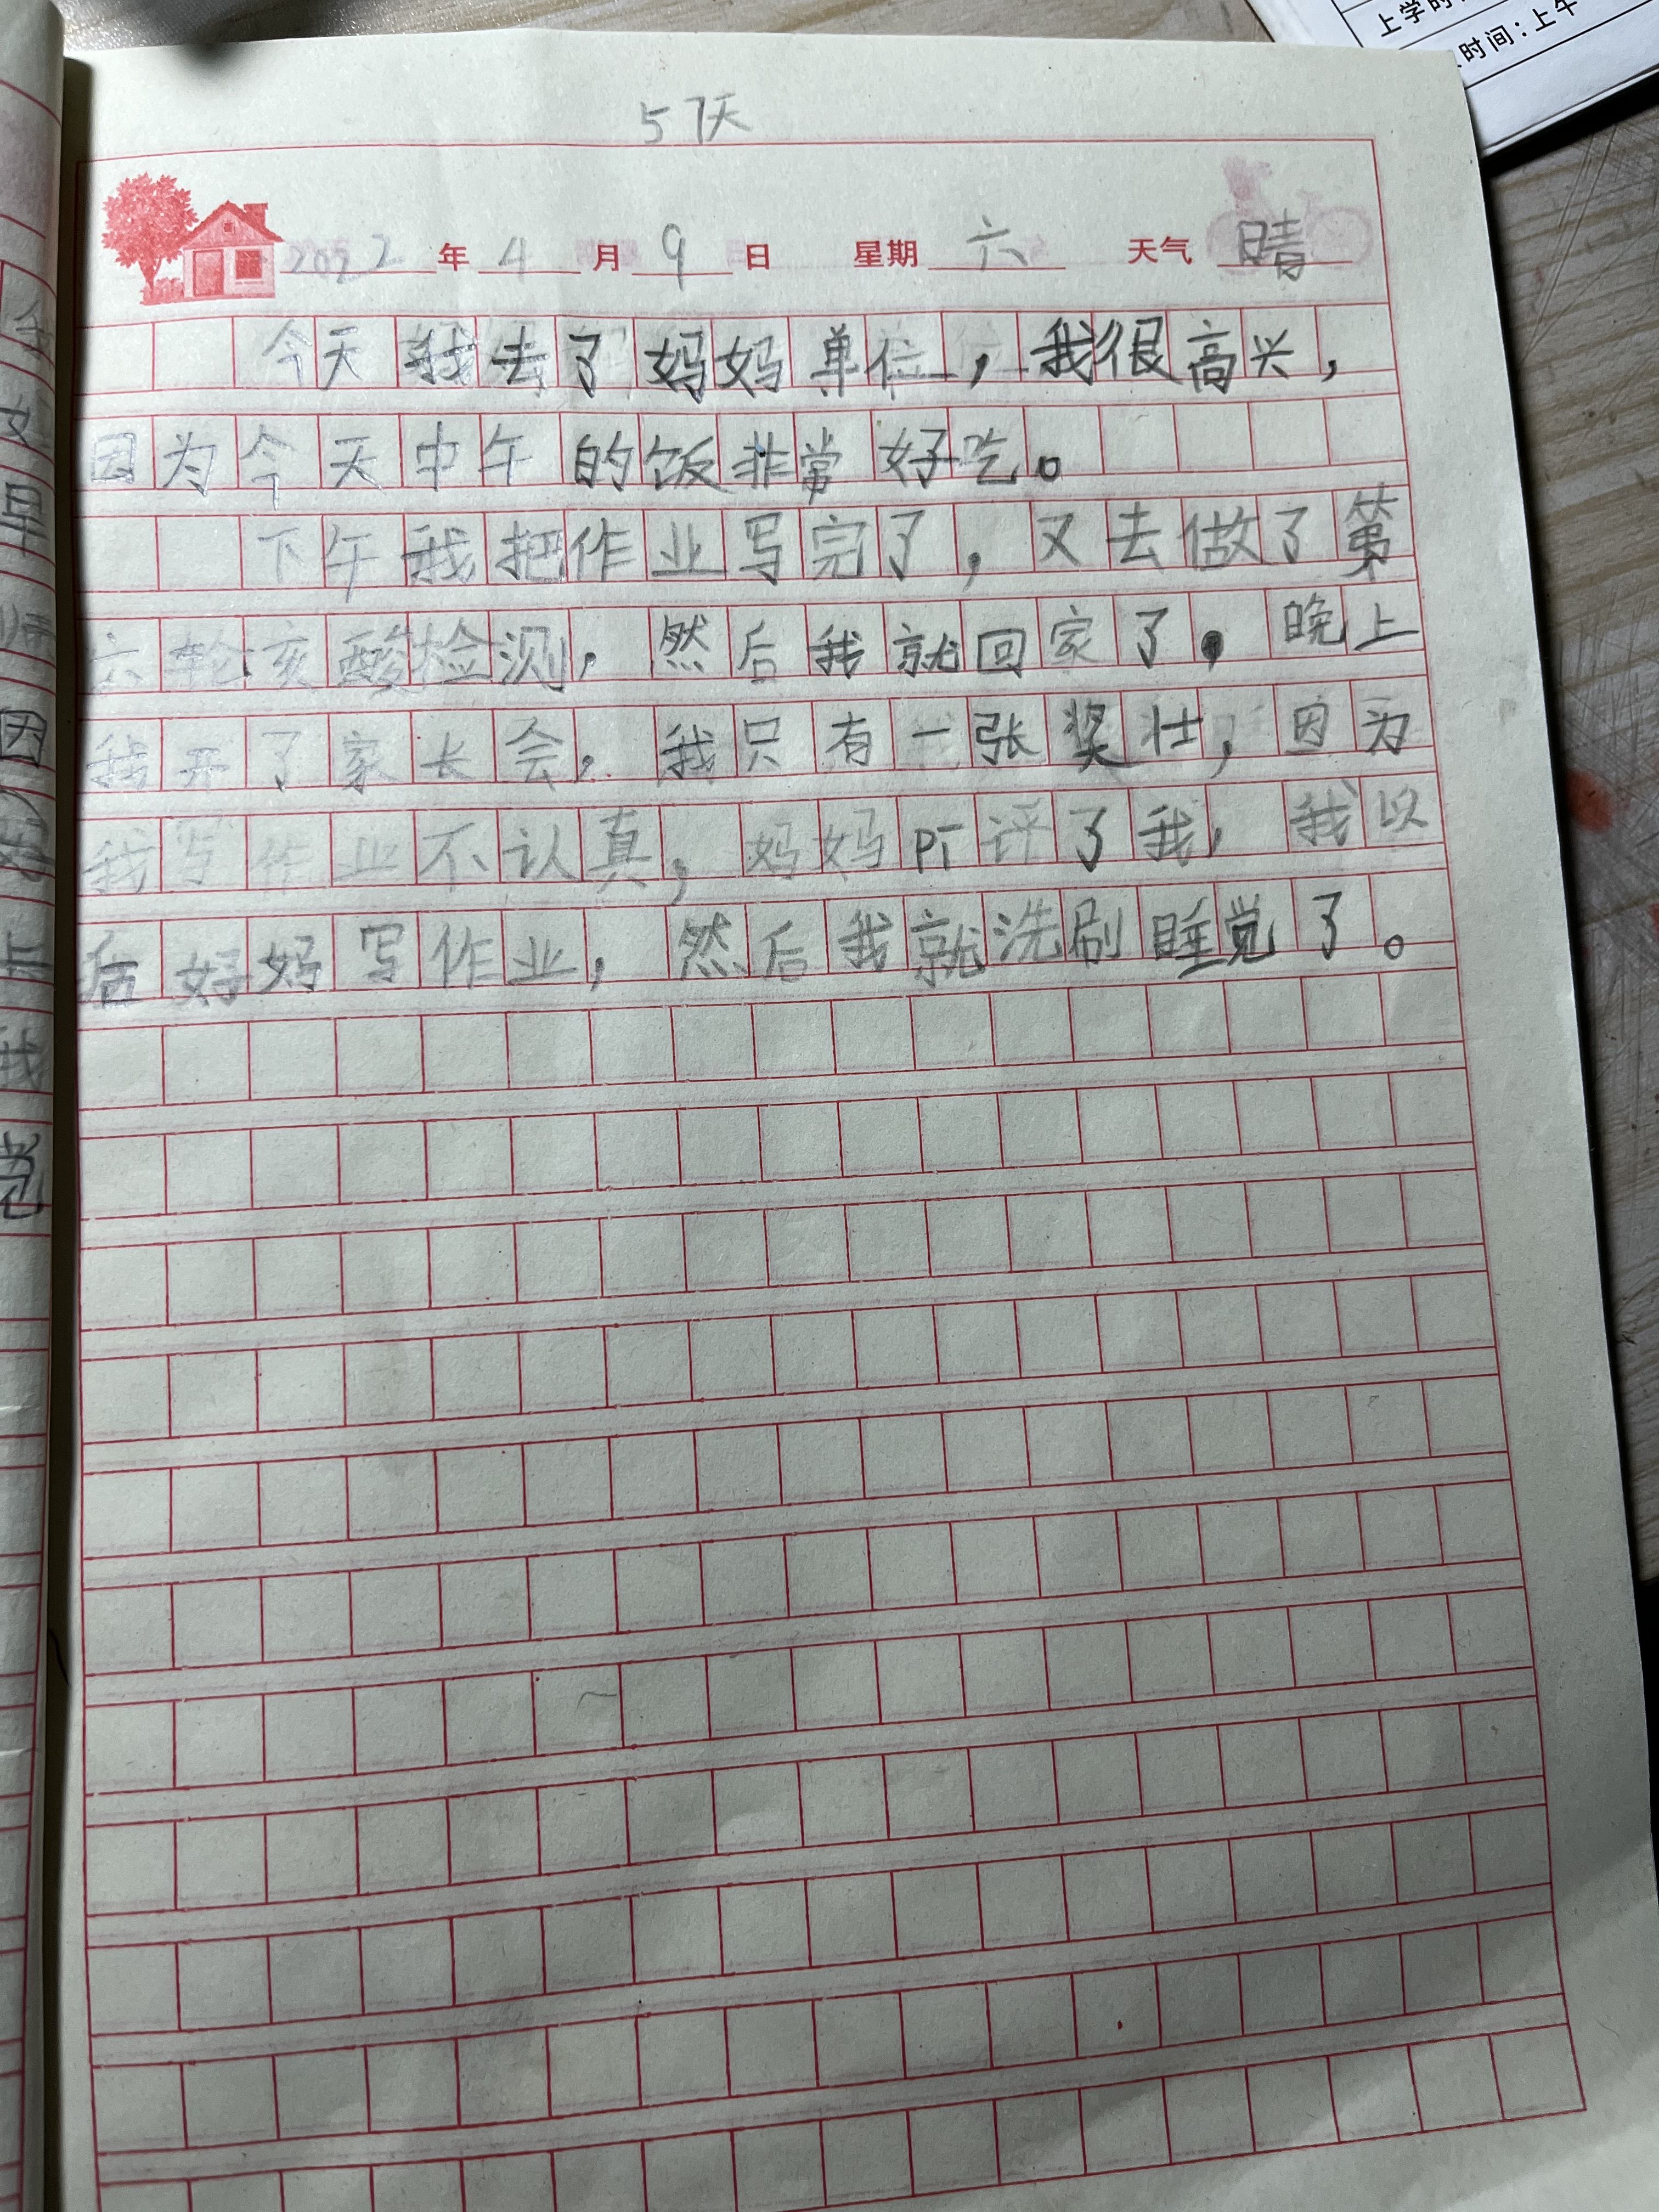 上学时
时间：上午
57天
2022年4月9日 星期六 天气 晴
今天我去了妈妈单位，我很高兴，
因为今天中午的饭非常好吃。
下午我把作业写完了，又去做了第
六轮亥酸检测，然后我就回家了。晚上
我开了家长会，我只有一张奖壮，因为
我写作业不认真，妈妈PT评了我，我以
后好好写作业，然后我就洗刷睡觉了。